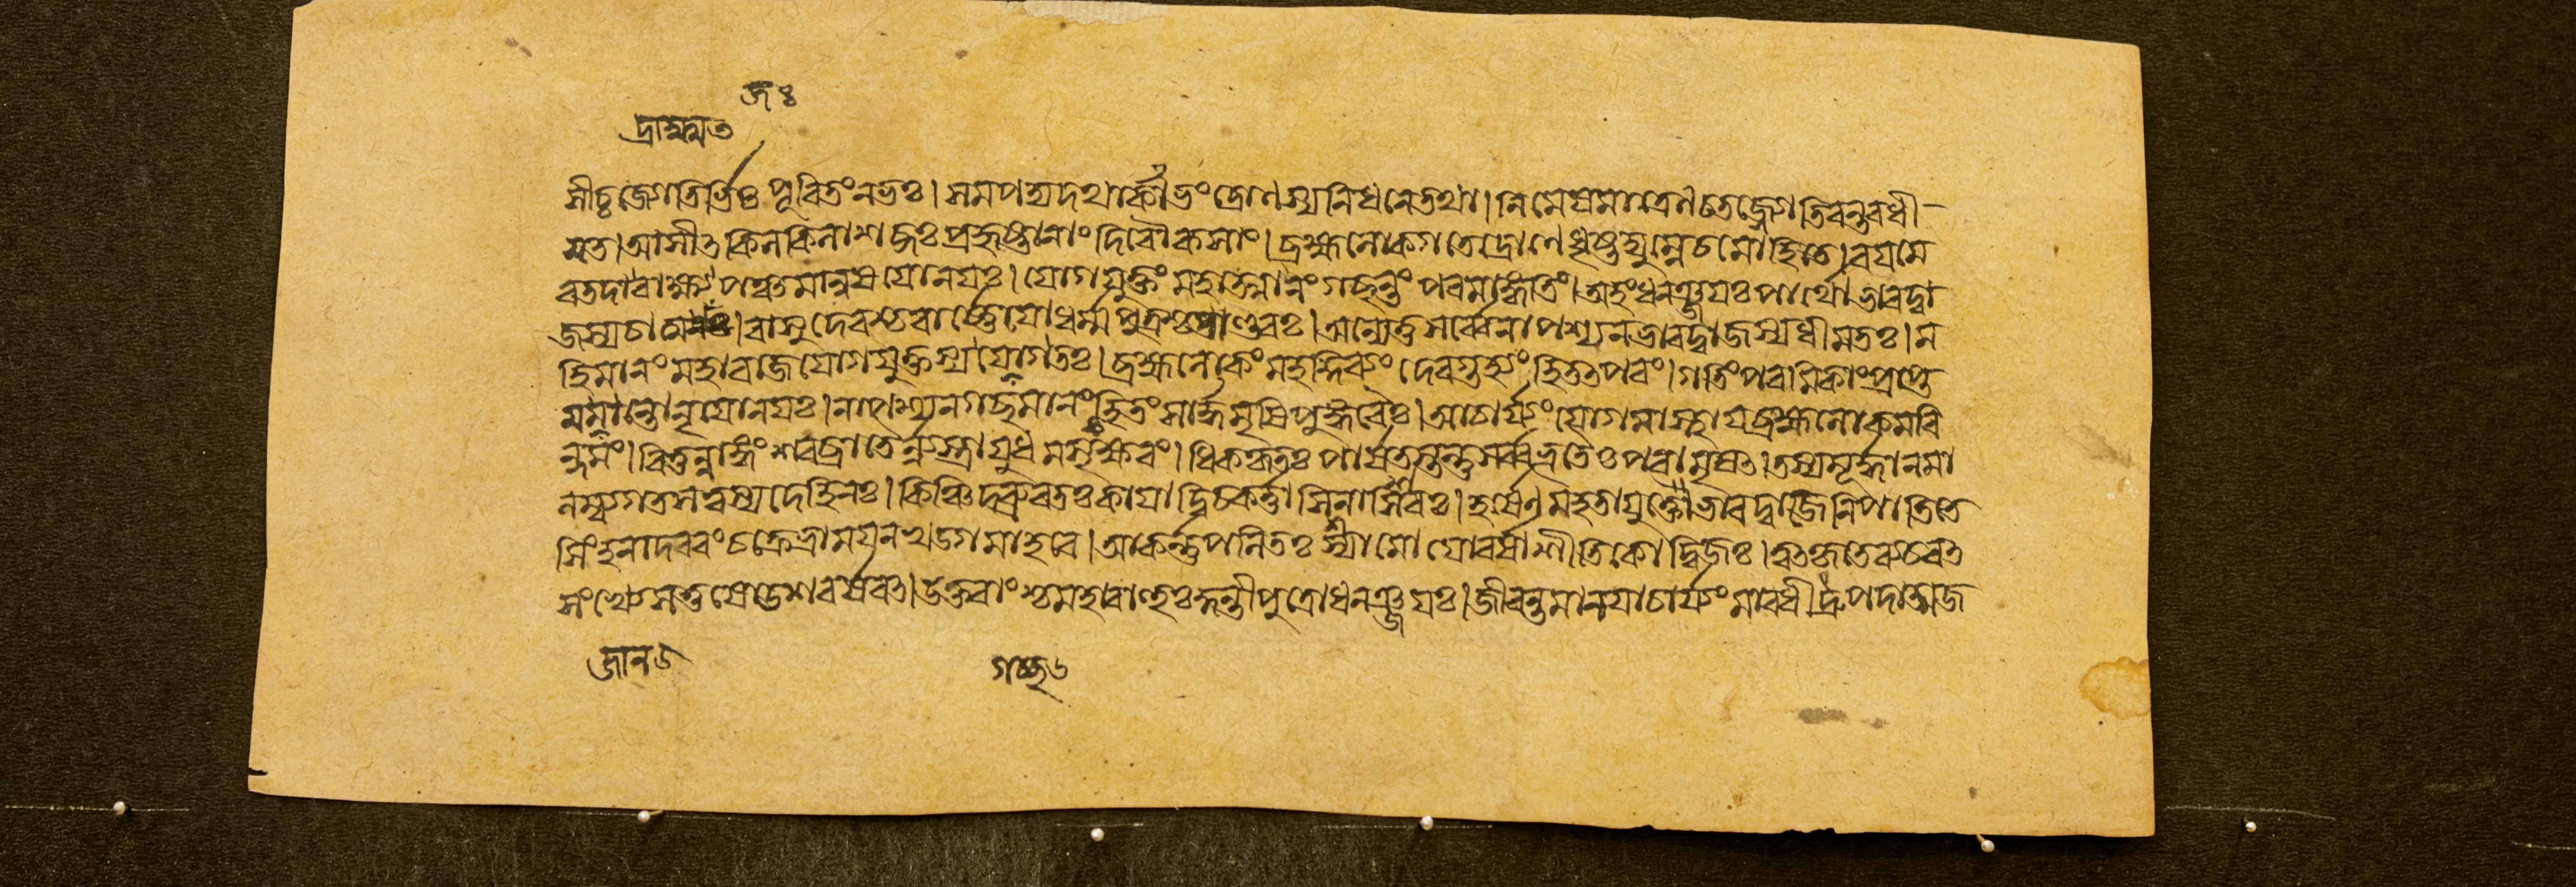 জঃ
সীচ্চজ্যোতির্ভিঃ পূরিতং নভঃ। সমপদ্যদথার্কাভং দ্রোণস্য নিধনে তথা। নিমেষমাত্রেণ চ তজ্জ্যোতিরন্তরধী
য়ত। আসীত কিলকিলাশব্দঃ প্রহৃষ্টানাং দিবৌকসাং। ব্রহ্মলোকগতে দ্রোণে ধৃষ্টদ্যুম্নে চ মোহিতে। বয়মে
ব তদাদ্রাক্ষ্ম পঞ্চ মানুষযোনয়ঃ। যোগযুক্তং মহাত্মানং গচ্ছন্তং পরমাঙ্গতিং। অহং ধনঞ্জয়ঃ পার্থো ভারদ্বা
জস্য চাত্মজঃ। বাসুদেবশ্চ বার্ষ্ণেয়ো ধর্ম্মপুত্রঃ পাণ্ডবঃ। অন্যে তু সর্ব্বে নাপশ্যন ভারদ্বাজস্য ধীমতঃ। ম
হিমানং মহারাজ যোগযুক্তস্য যোগতঃ। ব্রহ্মলোকং মহদ্দিব্যং দেবগুহ্যং হি তত পরং। গতিং পরমিকাং প্রাপ্ত
মজানন্তো নৃযোনয়ঃ। নাপশ্যন গচ্ছমানং হি তং সার্দ্ধমৃষিপুঙ্গবৈঃ। আচার্য্যং যোগমাস্থায় ব্রহ্মলোকমরি
ন্দমং। বিতুন্নাঙ্গং শরব্রাতৈর্ন্যস্তায়ুধমসৃক্ষরং। ধিক্কৃতঃ পার্ষতস্তন্তু সর্ব্বভূতৈঃ পরামৃষত। তস্য মূর্দ্ধানমা
লম্ব্য গতসত্বস্য দেহিনঃ। কিঞ্চিদব্রুবতঃ কায়াদ্বিচকর্ত্তাসিনা শিরঃ। হর্ষেণ মহতা যুক্তো ভারদ্বাজে নিপাতিতে
সিংহনাদরবং চক্রে ভ্রাময়ন খড্গমাহবে। আকর্ন্নপলিতঃ শ্যামো যোবর্ষাশীতিকো দ্বিজঃ। ত্বতকৃতে ব্যচরত
সংখ্যে স তু ষোডশবর্ষবত। উক্তবাংশ্চ মহাবাহুঃ কুন্তীপুত্রো ধনঞ্জয়ঃ। জীবন্তমানয়াচার্য্যং মা বধী দ্রুপদাত্মজ